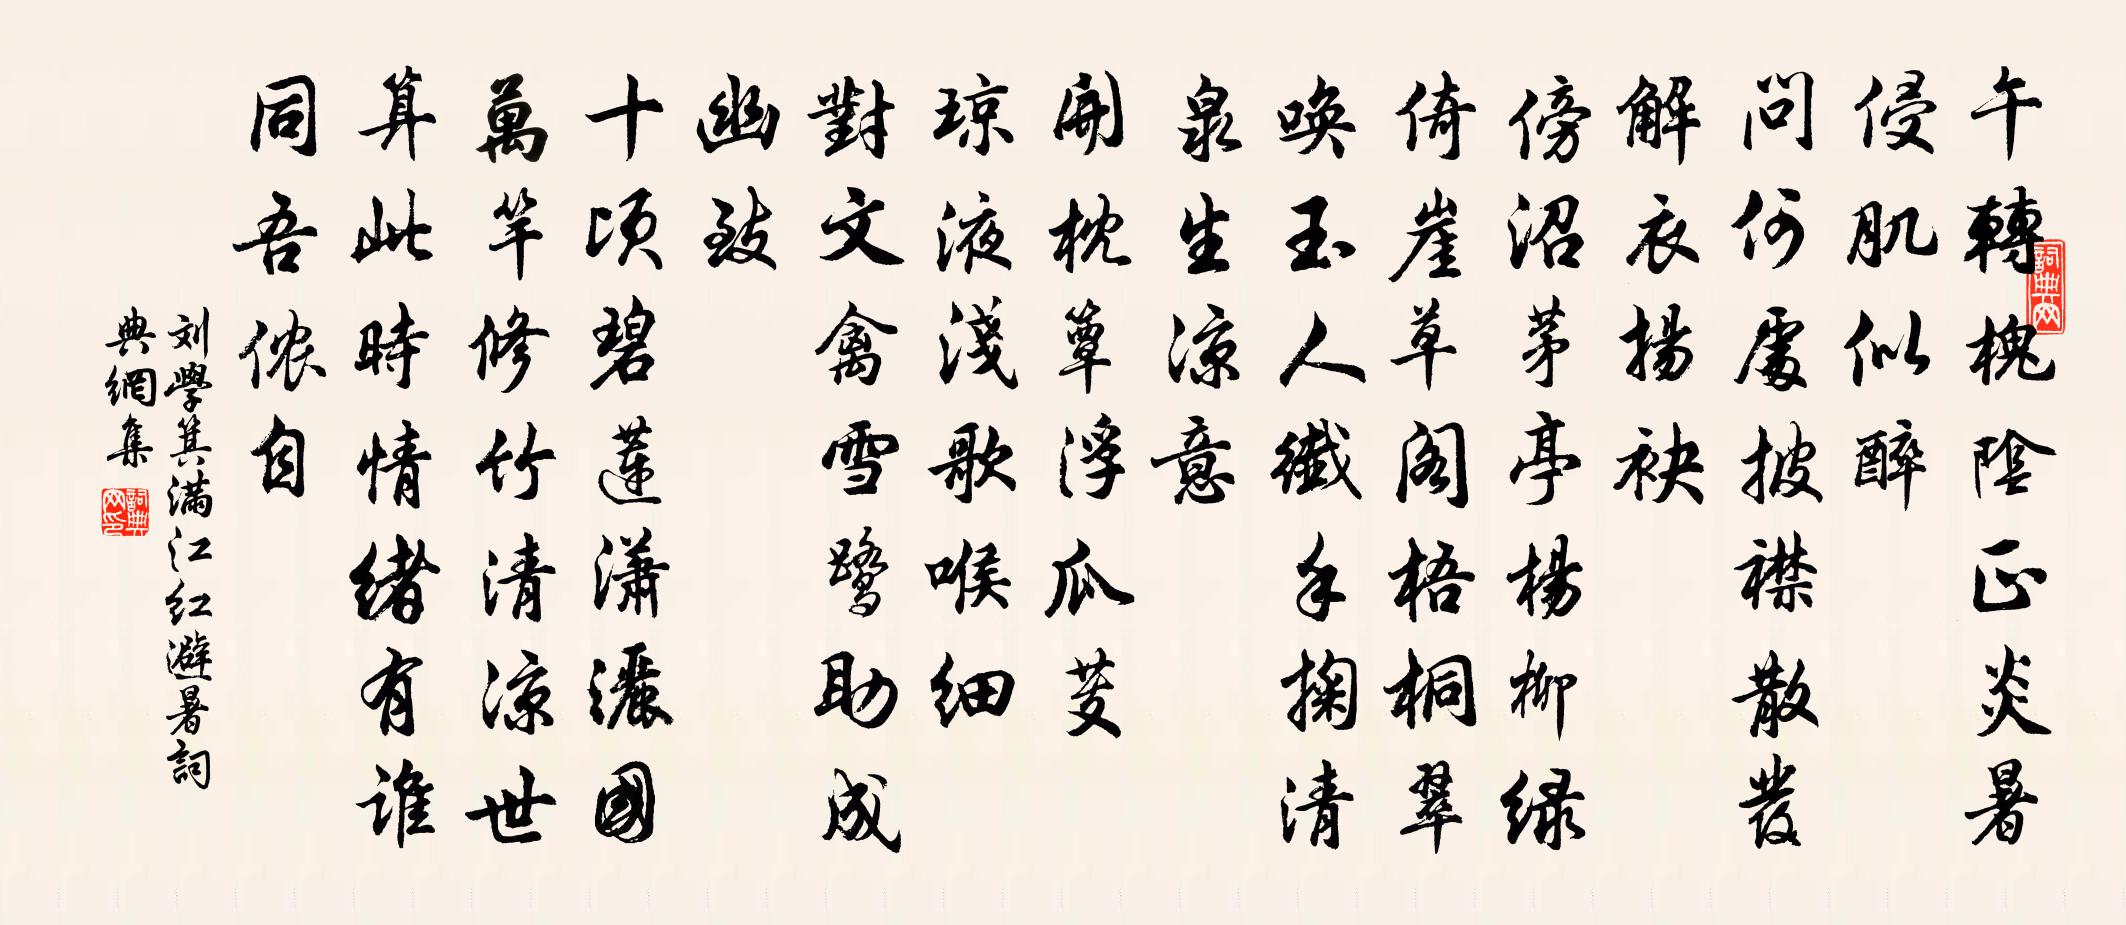 午轉槐陰正炎暑
侵肌似醉
問何處披襟散發
解衣揚袂
傍沼茅亭楊柳绿
倚崖草阁梧桐翠
唤玉人纖手掬清
泉生涼意
開枕簟浮瓜芰
琼液淺歌喉细
對文禽雪鹭助成
幽致
十顷碧蓮瀟灑國
萬竿修竹清涼世
算此時情緒有谁
同吾侬自
刘學箕满江红避暑詞
典網集
詞典网
詞典网印